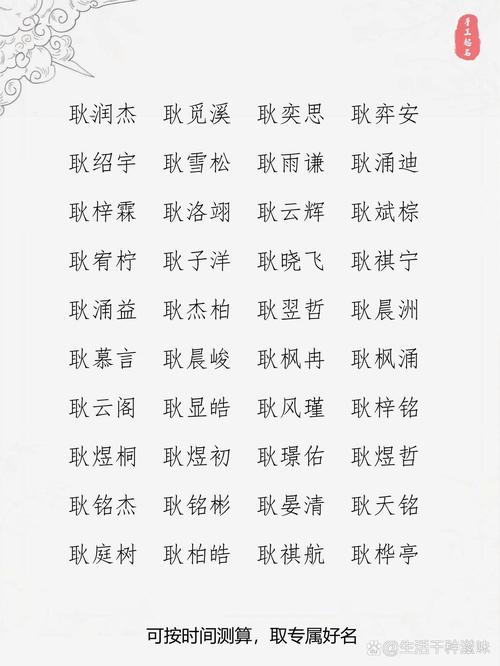 手工起名
耿润杰 耿觅溪 耿奕思 耿弈安
耿绍宇 耿雪松 耿雨谦 耿涌迪
耿梓霖 耿洛翊 耿云辉 耿斌棕
耿宥柠 耿子洋 耿晓飞 耿祺宁
耿涌益 耿杰柏 耿翌哲 耿晨洲
耿慕言 耿晨峻 耿枫冉 耿枫涌
耿云阁 耿显皓 耿风瑾 耿梓铭
耿煜桐 耿煜初 耿璟佑 耿煜哲
耿铭杰 耿铭彬 耿晏清 耿天铭
耿庭树 耿柏皓 耿祺航 耿桦亭
可按时间测算，取专属好名
Bai百科@生活千种滋味